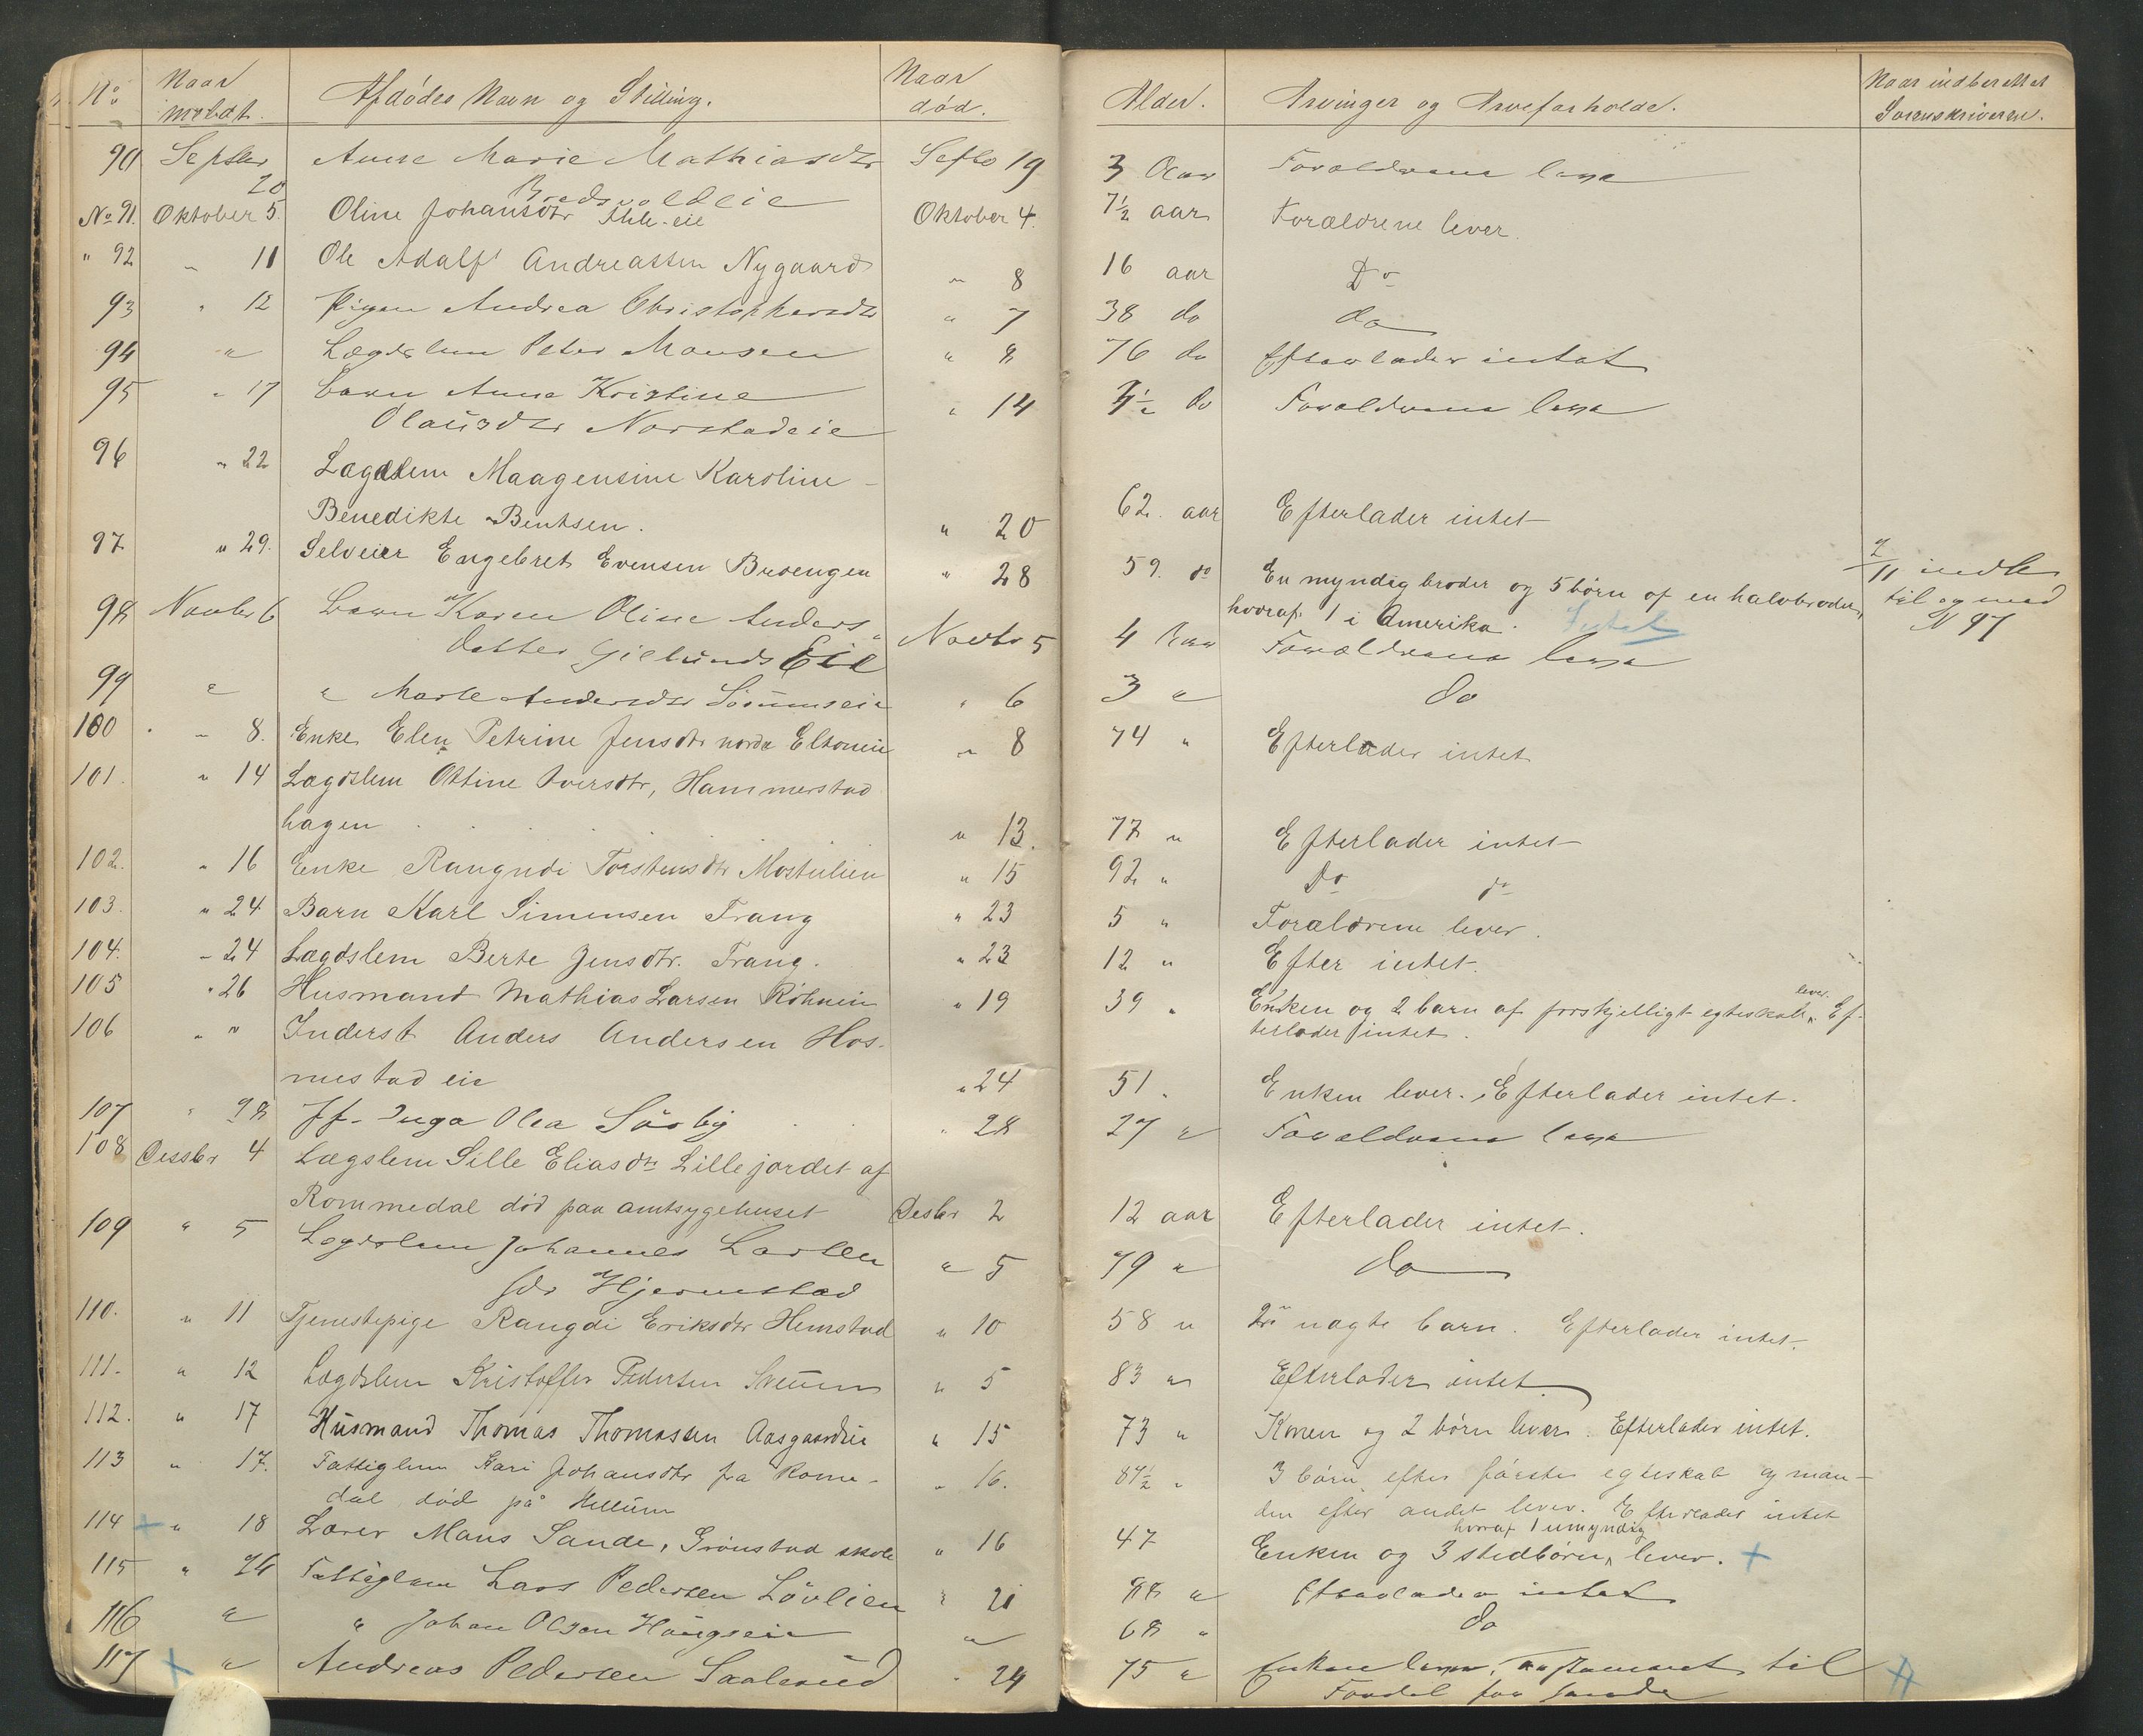 No Naar meldt. Afdødes Navn og Stilling. Naar død. Alder. Arvinger og Arveforholde. Naar indberettet Sorenskriveren.
90 Septbr 20 Anne Marie Mathiasdtr Septb 19 3 Forældrene leve
Bredvoldeie
No 91. Oktober 5. Oline Johansdtr eie Oktober 4. 7½ aar Forældrene lever.
" 92 " 11 Ole Adolf Andreassen Nygaard " 8 16 aar Do
93 " 12 Pigen Andrea Christophersdtr " 7 38 do do
94 " Lægdslem Peter Monsen " 8 76 do Efterlader intet
95 " 17 Barn Anne Kristine " 14 ½ do Forældrene leve
Olausdtr Norstadeie
96 " 22 Lægdslem Maagensine Karoline
Benedikte Bentsen. " 20 62. aar Efterlader intet
97. " 29. Selveier Engebret Evensen Broengen " 28 59. do En myndig broder og 5 børn af en halvbroder, 2/11 indb
hvoraf 1 i Amerika. til og med
N 97
98 Novbr 6 Barn Karen Oline Anders- Novbr 5 4 Forældrene leve
datter Gielunds Eie
99 " " Marte Andersdtr " 6 3 " do
100 " 8. Enke Elen Petrine Jensdtr nordre Eltoneie " 8 74 " Efterlader intet
101. " 14 Lægdslem Ottine Iversdtr, Hammerstad
hagen " 13. 77 " Efterlader intet
102. " 16 Enke Rangndi Torstensdtr Mostulien " 15 92 " Do do
103. " 24 Barn Karl Simensen Frang " 23 5 " Forældrene lever.
104. " 24 Lægdslem Berte Jensdtr. Frang. " 23 12 " Efter intet.
105 " 26 Husmand Mathias Larsen Röhneie " 19 39 " Enken og 2 barn af forskjelligt egteskab lever. Ef-
terlader intet.
106 " " Inderst Anders Andersen Hos-
mestad eie " 24 51. Enken lever. Efterlader intet.
107 " 28 Jf. Inga Olea Sörby " 28 27 " Forældrene leve
108 Dessbr 4 Lægslem Sille Eliasdtr Lillejordet af
Rommedal död paa amtsygehuset Desbr 2 12 aar Efterlader intet.
109 " 5 Legdslem Johannes Larsen " 5 79 " do
sdr Hjermstad
110. " 11 Tjenestepige Rangdi Eriksdtr Hemstad " 10 58 " 2 uægte barn. Efterlader intet.
111. " 12 Lægdslem Kristoffer Pedersen Sveum " 5 83 " Efterlader intet.
112. " 17 Husmand Thomas Thomassen Aasgaardeie " 15 73 " Konen og 2 børn lever. Efterlader intet.
113 " 17. Fattiglem Kari Johansdtr fra Rome- " 16. 84½ " 3 børn efter förste egteskab og man-
dal död på Hellum den efter andet lever. Efterlader intet
114 + " 18 Lærer Mons Sande, Grönstad skole " 16 47 Enken og 3 stedbörn, hvoraf 1 umyndig lever. +
115 " 24 Fattiglem Lars Pedersen Lövlien " 21 88 " Efterlader intet
116 " " Johan Olsen Haugseie " 68 " do
117 + " Andreas Pedersen Saalerud " 24 75 " Enken lever, Testamentet til
Fordel for